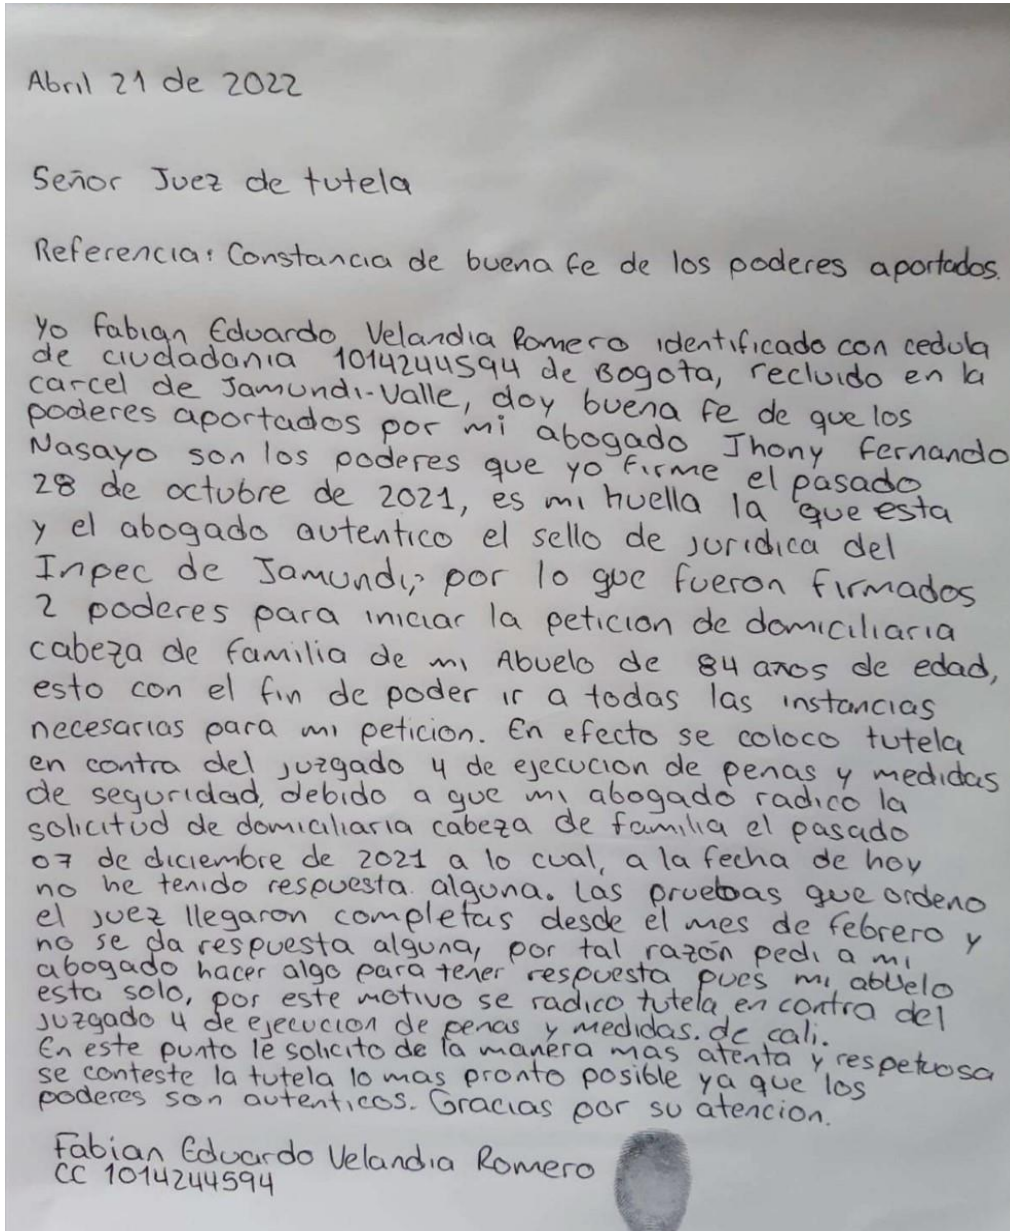 Abril 21 de 2022
Señor Juez de tutela
Referencia: Constancia de buena fe de los poderes aportados.
Yo Fabian Eduardo Velandia Romero identificado con cedula
de ciudadania 1014244594 de Bogota, recluido en la
carcel de Jamundi-Valle, doy buena fe de que los
poderes aportados por mi abogado Jhony Fernando
Nasayo son los poderes que yo firme el pasado
28 de octubre de 2021, es mi huella la que esta
y el abogado autentico el sello de juridica del
Inpec de Jamundi, por lo que fueron firmados
2 poderes para iniciar la peticion de domiciliaria
cabeza de familia de mi Abuelo de 84 anos de edad,
esto con el fin de poder ir a todas las instancias
necesarias para mi peticion. En efecto se coloco tutela
en contra del juzgado 4 de ejecucion de penas y medidas
de seguridad, debido a que mi abogado radico la
solicitud de domiciliaria cabeza de familia el pasado
07 de diciembre de 2021 a lo cual, a la fecha de hoy
no he tenido respuesta alguna. Las pruebas que ordeno
el juez llegaron completas desde el mes de febrero y
no se da respuesta alguna, por tal razón pedi a mi
abogado hacer algo para tener respuesta pues mi abuelo
esta solo, por este motivo se radico tutela en contra del
juzgado 4 de ejecucion de penas y medidas. de cali.
En este punto le solicito de la manera mas atenta y respetuosa
se conteste la tutela lo mas pronto posible ya que los
poderes son autenticos. Gracias por su atencion.
Fabian Eduardo Velandia Romero
CC 1014244594